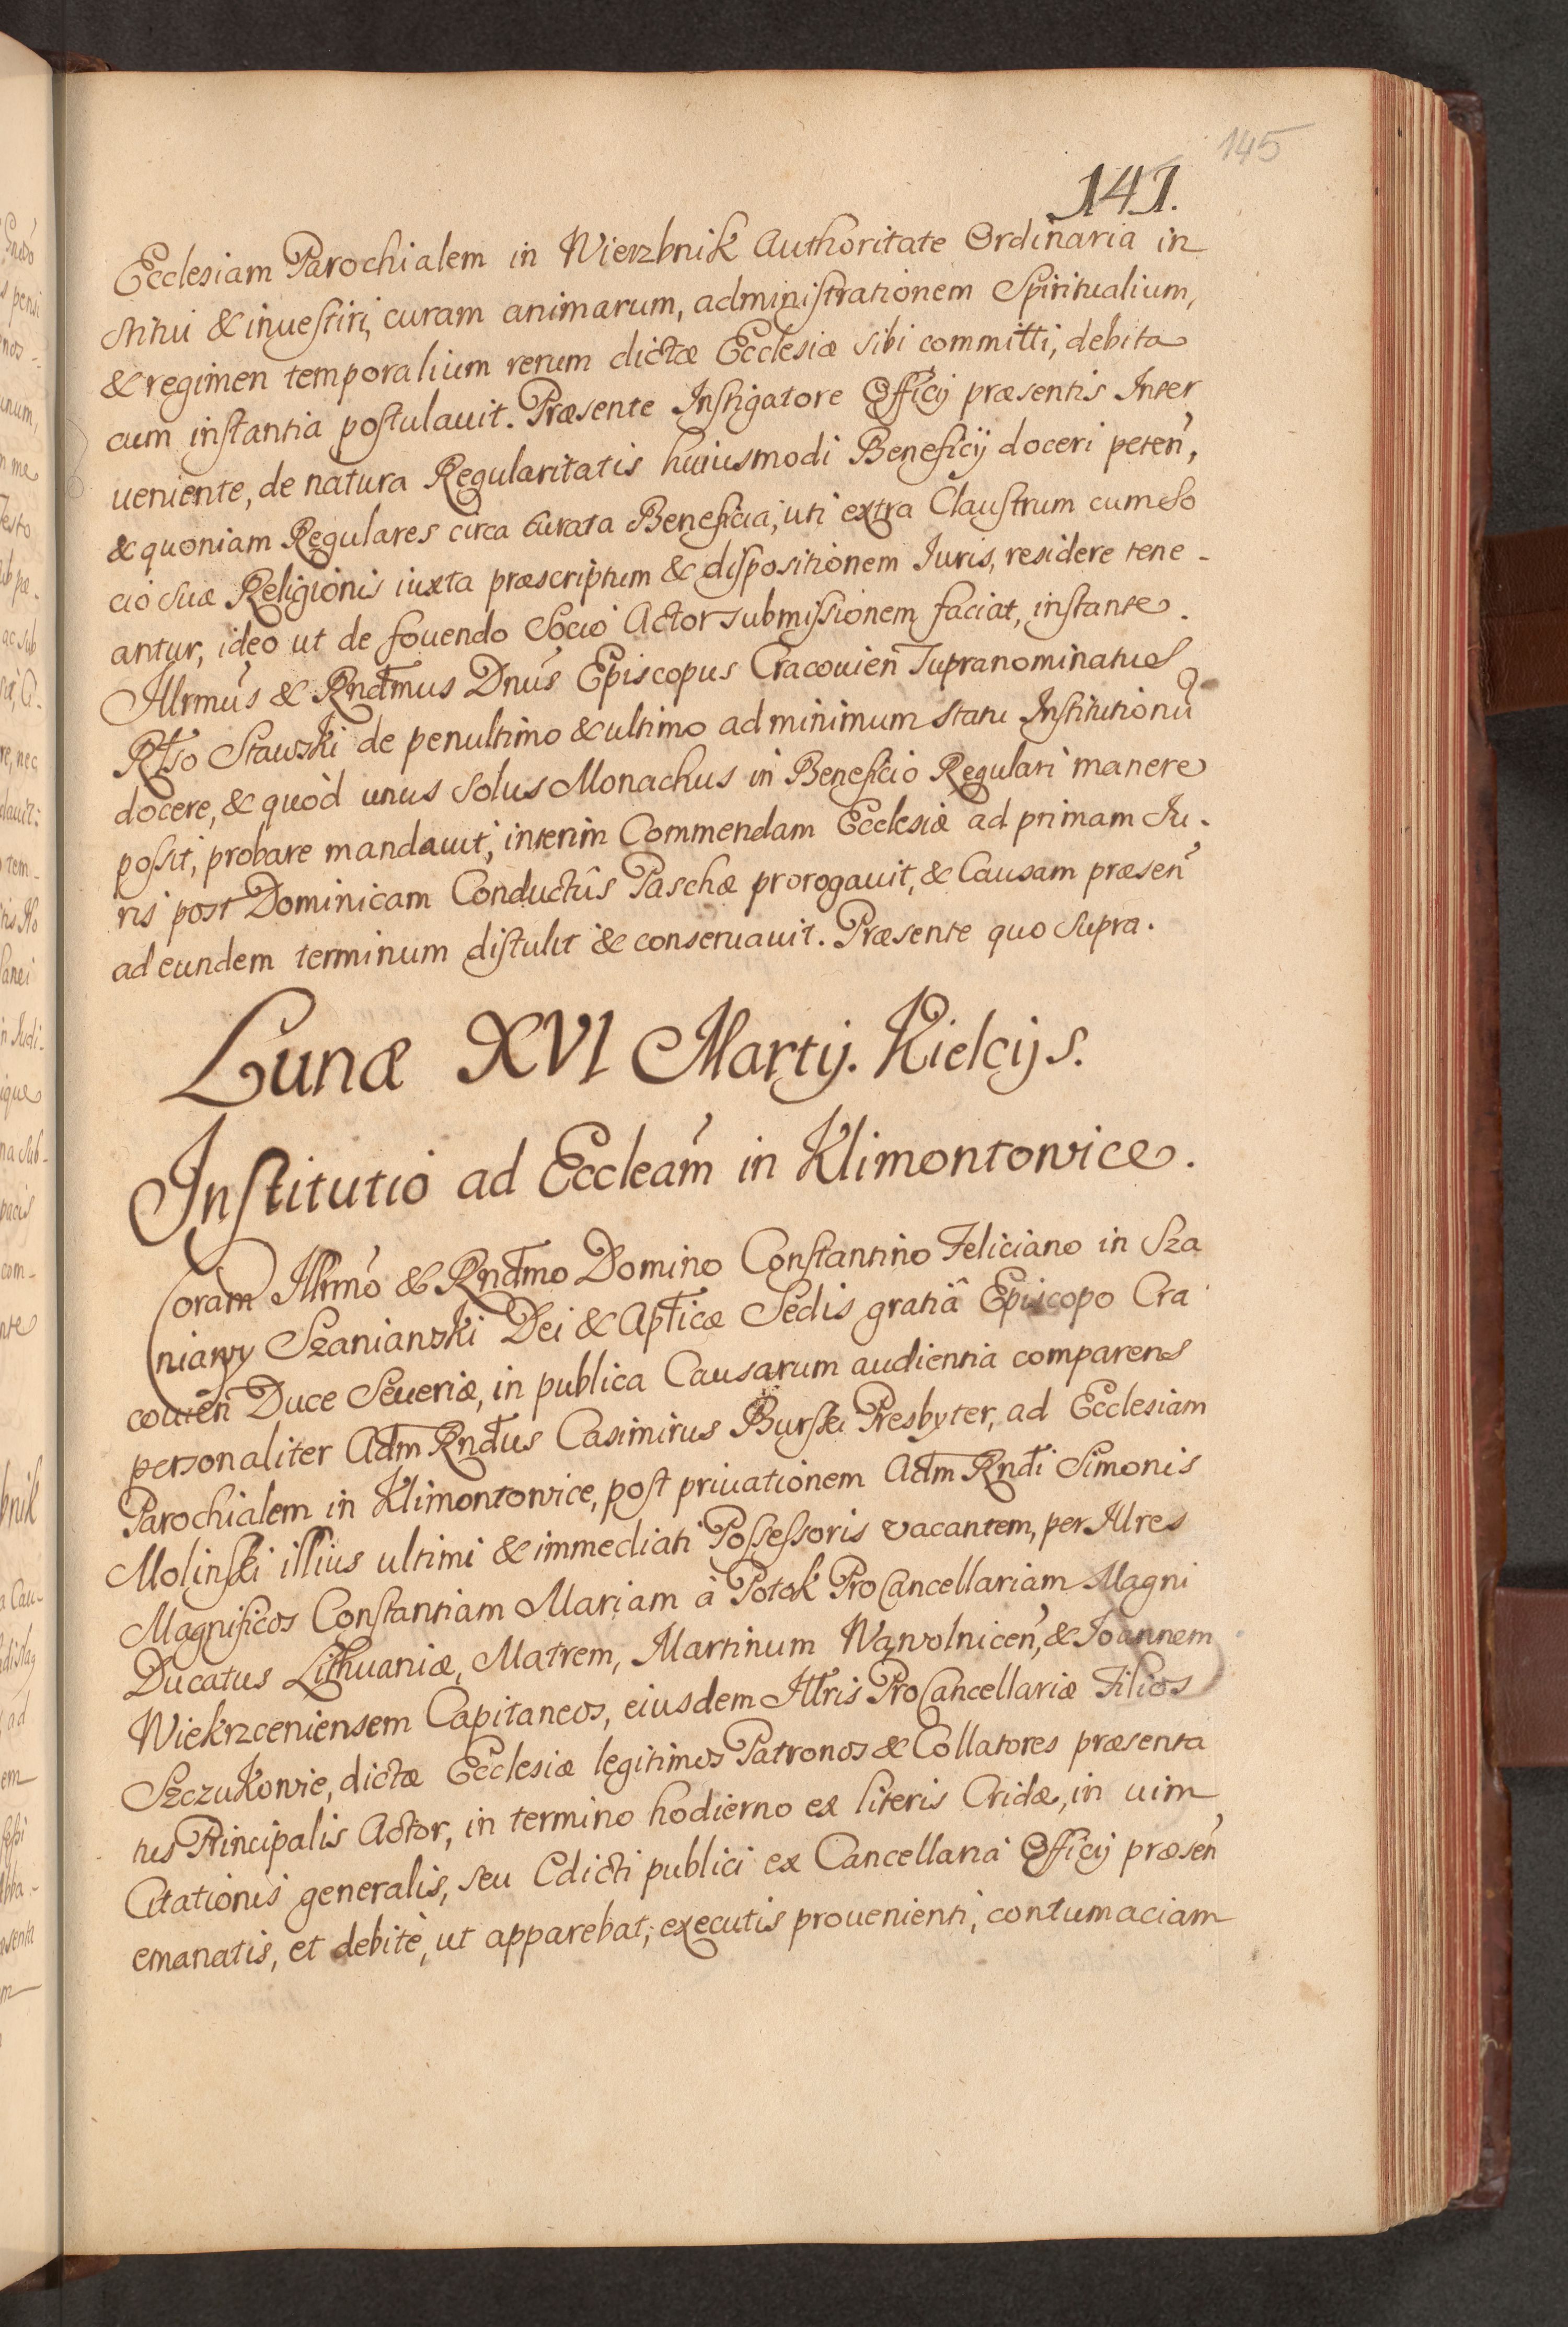 145
141.
Ecclesiam Parochialem in Wierzbnik Authoritate Ordinaria in
stitui & inuestiri, curam animarum, administrationem Spiritualium,
& regimen temporalium rerum dictæ Ecclesiæ sibi committi, debita
cum instantia postulauit. Præsente Instigatore Officij præsentis Inter
ueniente, de natura Regularitatis huiusmodi Beneficij doceri peteñ,
& quoniam Regulares circa curata Beneficia, uti extra Claustrum cum So
cio suæ Religionis iuxta præscriptum & dispositionem Iuris, residere tene-
antur, ideo ut de fouendo Socio Actor submissionem faciat, instante.
Illrmus & Rndmus Dnus Episcopus Cracouień Supranominatus
Rlso Stawski de penultimo & ultimo ad minimum statu Institutionũ
docere, & quòd unus solus Monachus in Beneficio Regulari manere
possit, probare mandauit, interim Commendam Ecclesiæ ad primam Iu-
ris post Dominicam Conductûs Paschæ prorogauit, & Causam præseñ
ad eundem terminum distulit & conseruauit. Præsente quo supra.
Lunæ XVI Martij. Kielcijs.
Institutio ad Eccleam̃ in Klimontowice.
Coram Illrmo & Rndmo Domino Constantino Feliciano in Sza
niawy Szaniawski Dei & Aplicæ Sedis gratiâ Episcopo Cra
couień Duce Seueriæ, in publica Causarum audientia comparens
personaliter Adm Rndus Casimirus Burski Presbyter, ad Ecclesiam
Parochialem in Klimontowice, post priuationem Adm Rndi Simonis
Molinski illius ultimi & immediati Possessoris vacantem, per Illres
Magnificos Constantiam Mariam à Potok ProCancellariam Magni
Ducatus Lithuaniæ, Matrem, Martinum Wąwolniceñ, & Ioannem
Wiekrzceniensem Capitaneos, eiusdem Illris ProCancellariæ Filios
Szczukowie, dictæ Ecclesiæ legitimos Patronos & Collatores præsenta
tus Principalis Actor, in termino hodierno ex literis Cridæ, in uim
Citationis generalis, seu Edicti publici ex Cancellaria Officij præseñ
emanatis, et debitè, ut apparebat, executis prouenienti, contumaciam